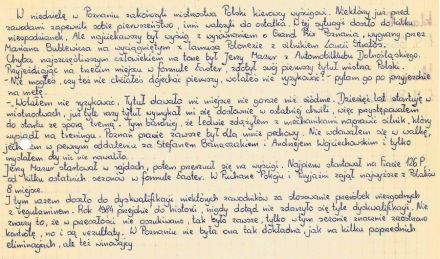 W niedzielę w Poznaniu zakończyły mistrzostwa Polski kierowcy wyścigowi. Niektórzy już przed
zawodami zapewnili sobie pierwszeństwo, inni walczyli do ostatka. W tej sytuacji doszło do kilku
niespodzianek. Ale najciekawszy był wyścig z wyrównaniem o Grand Prix Poznania, wygrany przez
Mariana Bublewicza na wyciągniętym z lamusa Polonezie z silnikiem Lancii Stratos.
Chyba najszczęśliwszym człowiekiem na torze był Jerzy Mazur z Automobilklubu Dolnośląskiego.
Przyjeżdżając na trzecim miejscu w formule Easter, zdobył swój pierwszy tytuł mistrza Polski.
- Nie mogłeś, czy też nie chciałeś dojechać pierwszy, wolałeś nie ryzykować? - pytam go po przyjeździe
na metę.
- Wolałem nie ryzykować. Tytuł dawało mi miejsce nie gorsze niż siódme. Dziesięć lat startuję w
mistrzostwach, już tyle razy tytuł wymykał mi się dosłownie w ostatniej chwili, więc przystępowałem
do startu ze sporą tremą. Tym bardziej, że ledwie zdążyłem z mechanikami naprawić silnik, który
wysiadł na treningu. Poznań prawie zawsze był dla mnie pechowy. Nie wdawałem się w walkę,
jechałem w pewnym oddaleniu za Stefanem Biernackim i Andrzejem Wojciechowskim i tylko
myślałem, aby nic nie nawaliło.
Jerzy Mazur startował w rajdach, potem przerzucił się na wyścigi. Najpierw startował na Fiacie 126 P,
od kilku ostatnich sezonów w formule Easter. W Pucharze Pokoju i Przyjaźni zajął najwyższe z Polaków
8 miejsce.
I tym razem doszło do dyskwalifikacji niektórych zawodników za stosowanie przeróbek niezgodnych
z regulaminem. Rok 1984 przejdzie do historii, nigdy dotąd nie zdarzyło się tyle dyskwalifikacji. Nie
znaczy to, że w przeszłości nie oszukiwano, tak było zawsze, tylko w tym sezonie znacznie zaostrzono
kontrolę, no i są rezultaty. W Poznaniu nie była ona tak dokładna, jak na kilku poprzednich
eliminacjach, ale też winowajcy